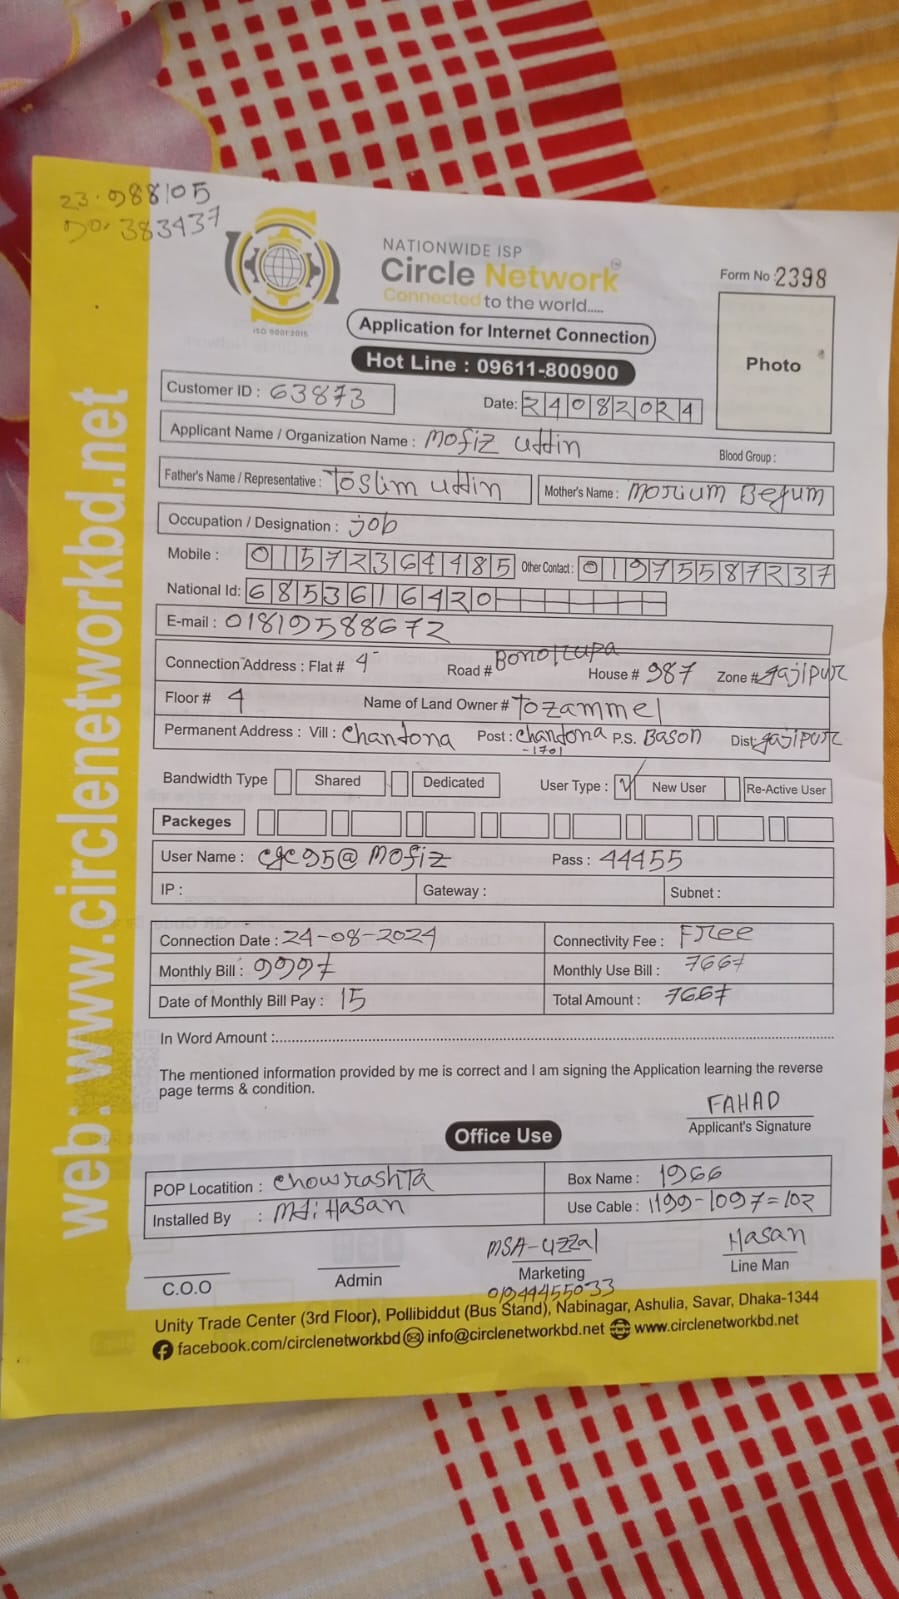 23.988105
90.383437
NATIONWIDE ISP
Circle Network
Connected to the world.....
ISO 9001:2015
Form No : 2398
Application for Internet Connection
Hot Line : 09611-800900
Photo
Customer ID : 63873
Date: 24082024
Applicant Name / Organization Name : Mofiz uttin
Blood Group :
Father's Name / Representative : Toslim uttin
Mother's Name : Morium Begum
Occupation / Designation : job
Mobile : 01572364485 Other Contact : 01975587237
National Id: 6853616420
E-mail : 01819588672
Connection Address : Flat # 4 Road # Bonorupa House # 987 Zone # gajipur
Floor # 4 Name of Land Owner # Tozammel
Permanent Address : Vill : Chandona Post : Chandona -1701 P.S. Bason Dist: gajipur
Bandwidth Type Shared Dedicated User Type : New User Re-Active User
Packeges
User Name : Pass : 44455
IP : Gateway : Subnet :
Connection Date : 24-08-2024 Connectivity Fee : Free
Monthly Bill : 999/= Monthly Use Bill : 766/=
Date of Monthly Bill Pay : 15 Total Amount : 766/=
In Word Amount :
The mentioned information provided by me is correct and I am signing the Application learning the reverse
page terms & condition.
FAHAD
Applicant's Signature
Office Use
POP Locatition : Chowrashta Box Name : 1966
Installed By : Md: Hasan Use Cable : 1199-1097=102
C.O.O
Admin
MSA-Uzzal
Marketing
01944455033
Hasan
Line Man
Unity Trade Center (3rd Floor), Pollibiddut (Bus Stand), Nabinagar, Ashulia, Savar, Dhaka-1344
facebook.com/circlenetworkbd info@circlenetworkbd.net www.circlenetworkbd.net
web: www.circlenetworkbd.net